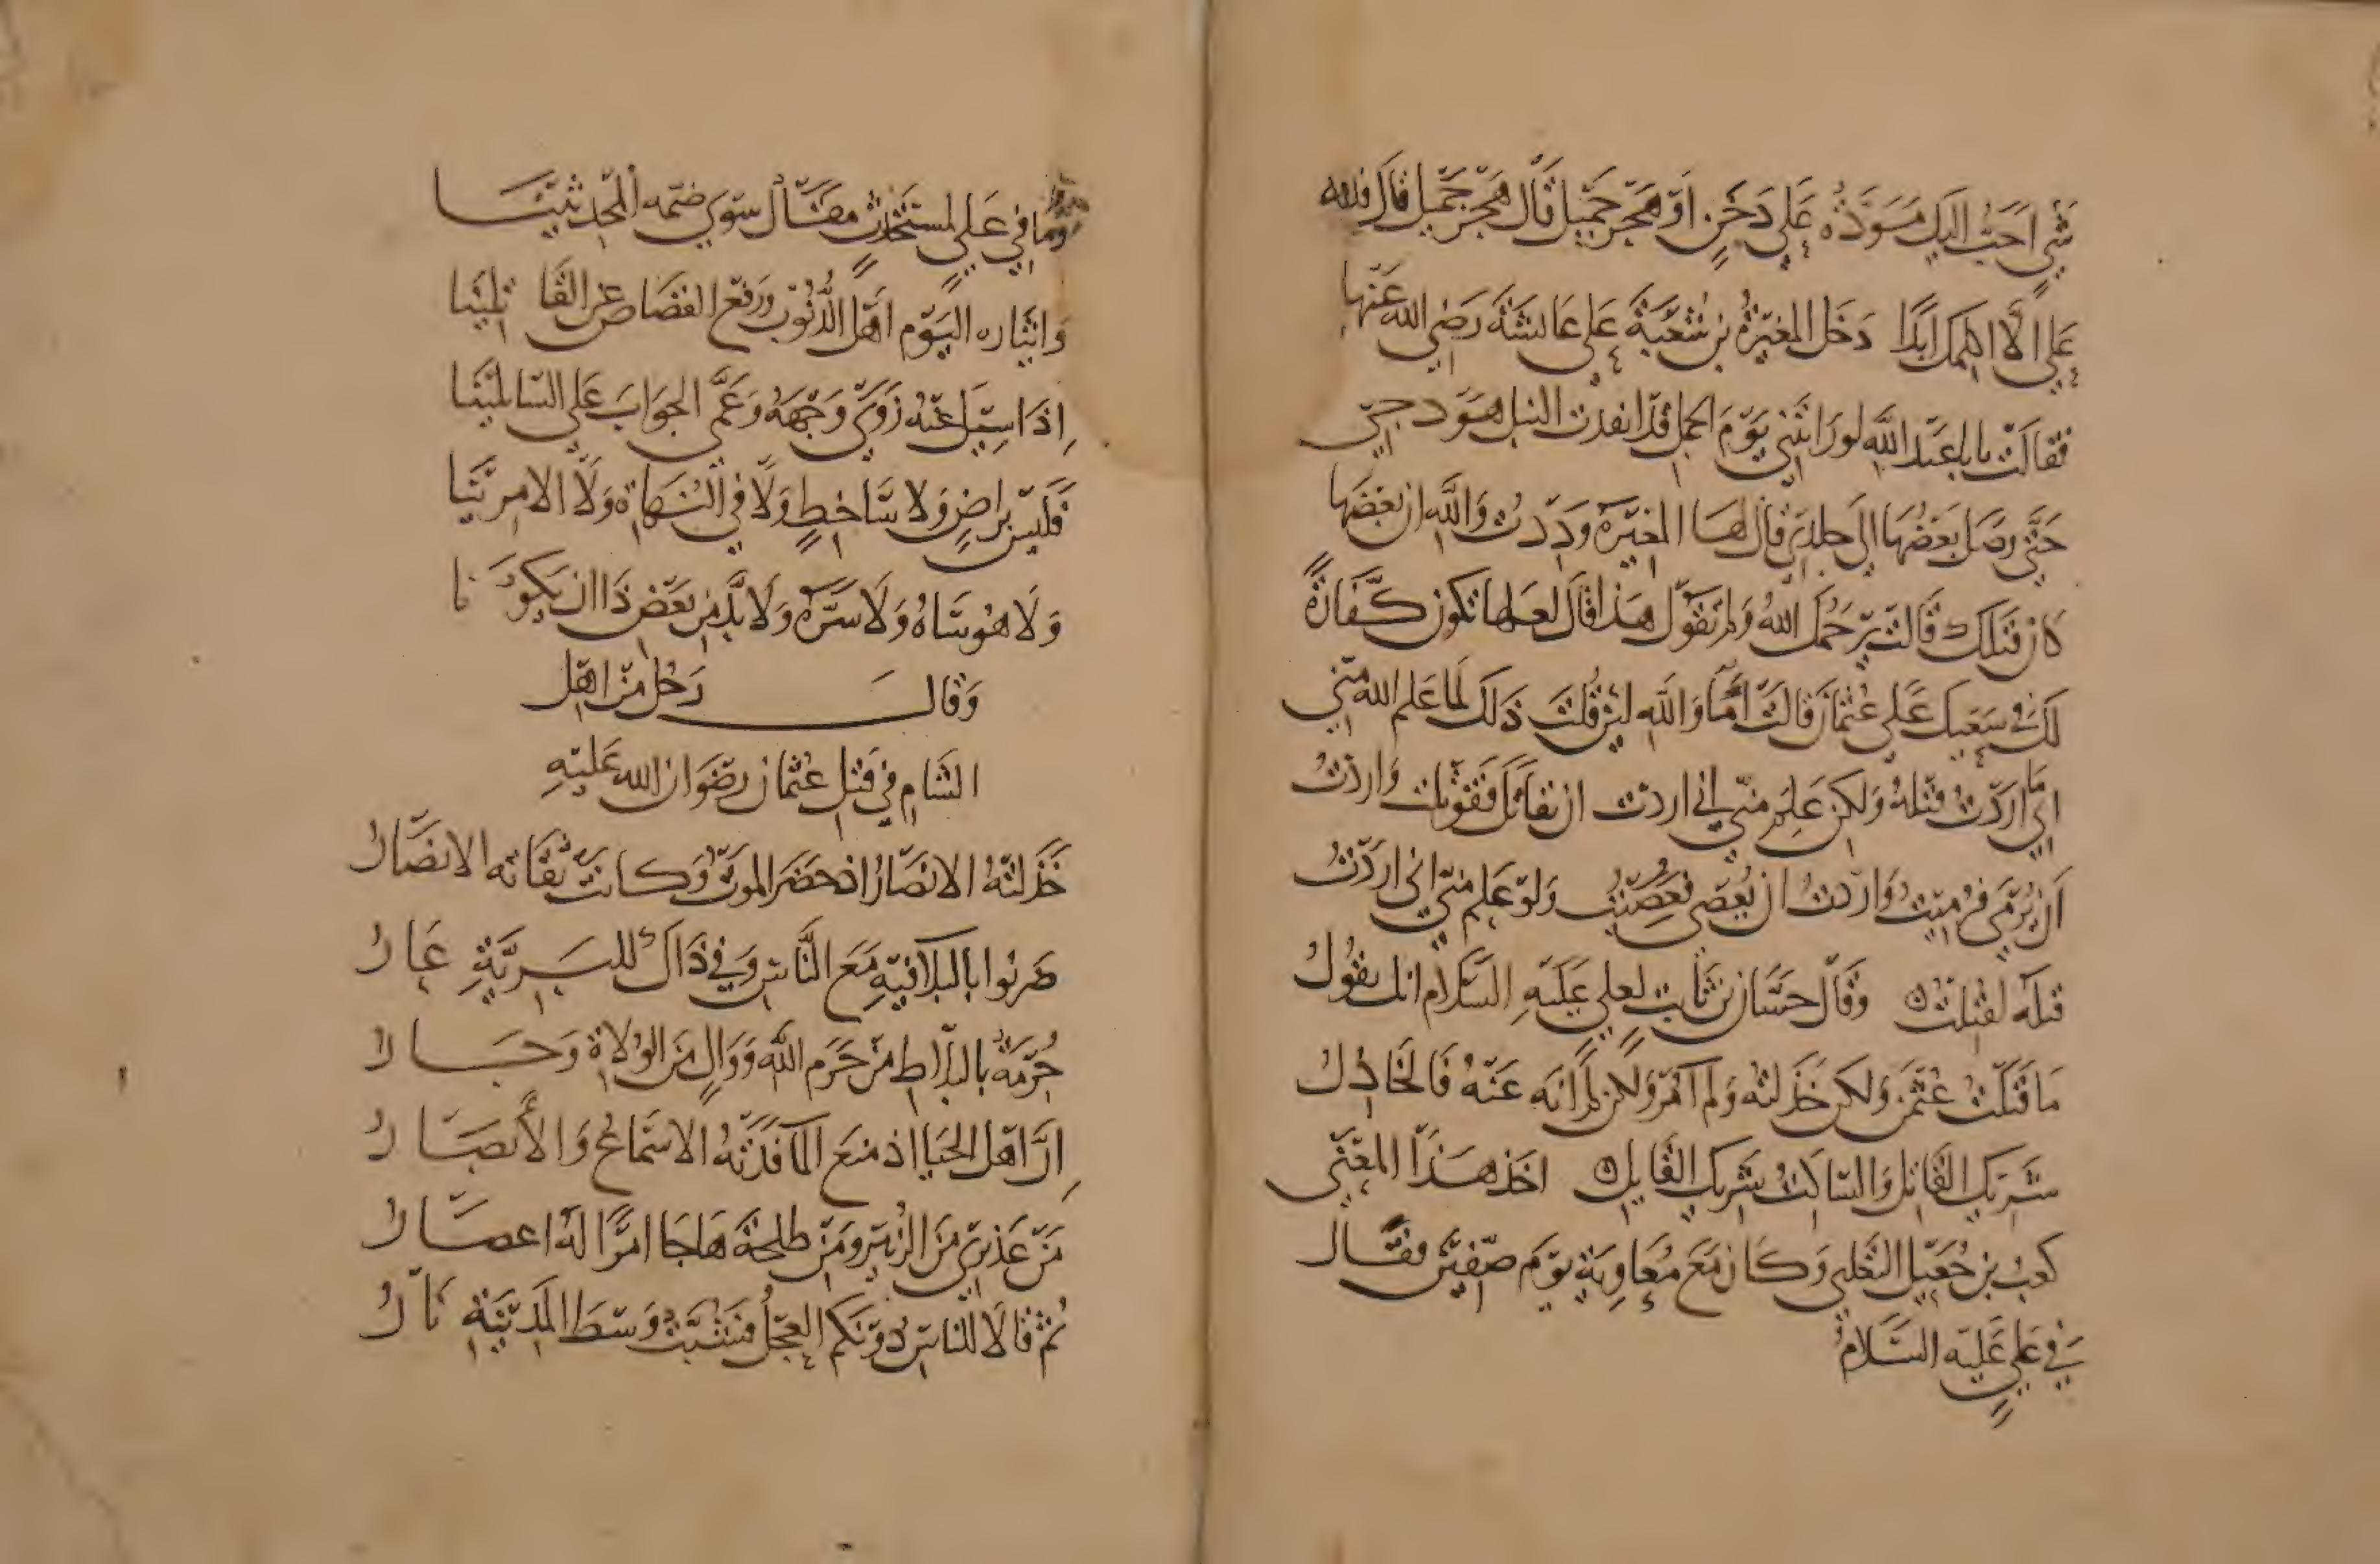 شَيْءٍ أحَبُّ اليك مَوَدَّةٌ عَلى دَخَنٍ اَوْ هَجْرٌ جَميل قال هَجْرٌ جَميل قال فلله
عَلَيَّ الّا اكلمك ابدًا دَخَلَ المغيرَةُ بن شعْبَةَ عَلى عَائشَةَ رَضي الله عَنْها
فقالَتْ يابا عَبْد اللهِ لو رَايْتَني يَوْمَ الجمل قدْ انفذت النبل هَوْدجي
حَتّى وصَلَ بَعْضُهَا الى جلدي قال لهَا المغيْرَة وَدِدْتُ وَاللهِ ان بعْضَها
كان قتلك قَالت يَرْحَمُك اللهُ وَلمَ تَقُول هَذا قال لعَلها تكون كفّارَةً
لك في سَعْيك عَلى عُثمان قالت أمَا وَاللهِ لئن قُلتَ ذلك لما علم الله منّي
اني ما ارَدْتُ قتله وَلكن عَلِمَ منّي اني اردْت ان يقاتل فقوتلت وَاردْتُ
اَن يُرْمَى فرُميتُ وَارَدتُ ان يُعْصَى فعُصِيْتُ وَلوْ عَلِمَ منّي اني ارَدْتُ
قتله لقُتِلْتُ وقَال حسَّان بن ثابت لعلي عَلَيْهِ السَّلام انك تقُولُ
مَا قَتَلْتُ عُثْمن وَلكن خَذَلتُه وَلم آمُرْ وَلكن لم انْهَ عَنْهُ فَالخَاذِلُ
شَريك القاتِل وَالساكتُ شَريك القاتل اخَذ هَذَا المعْنَى
كعبُ بن جُعَيْل التغلبي وَكَان مَعَ مُعَاوِيَة يَوْم صفيْن فقَال
في عليٍّ عَليْه السَّلامُ
وَمَا في عَليٍّ لمستَحْدِثٍ مقَال سِوى ضمّه المحدثيْنَا
وَايثاره اليَوْم أهْلَ الذُّنُوْب وَرَفْع القصَاص عن القاتلينَا
اِذَا سِيْلَ عَنْهُ زَوَى وَجْهَهُ وَعَمَّى الجوَابَ عَلى السّائلينَا
فَليْس برَاضٍ وَلا سَاخطٍ وَلا في النُهَاة وَلا الامرينَا
وَلا هُو سَاهُ وَلا سَرَّهُ وَلا بُدّ من بَعْض ذا ان يَكُونَا
وَقال رَجُل مْن اهْل
الشام في قتل عثمان رضوَان الله عَليْهِ
خَذَلتْهُ الانصَارُ اذ حضَر الموتُ وَكانَتْ ثقَاتَه الانصَارُ
ضَربُوا بالبلاء فيهِ مَعَ النَّاسِ وَفي ذَاكَ للبَرِيَّةِ عَارُ
حُرْمَةٌ بالبلاط مْن حُرَم اللهِ وَوَالٍ منَ الوُلاة وَجَارُ
اِنَّ اهْل الحيَا اذ مُنعَ الما فَدَتْهُ الاسْماعُ وَالأبصَارُ
مَنْ عَذيري مْنَ الزبيْر ومَن طلحَة هَاجَا امْرًا لهُ اعصَارُ
ثم قالا للناسِ دُوْنَكم العِجْلُ فشَبَّتْ وَسْط المَدْينةِ نَارُ